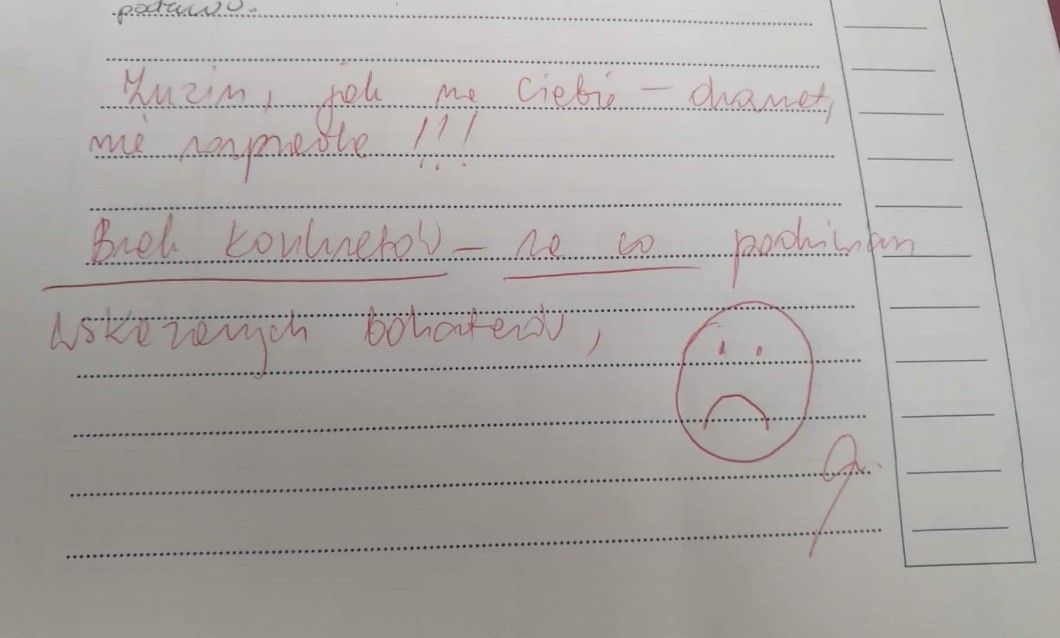 Zuzin, jak na Ciebie – dramat,
nie rozprawka !!!
Brak konkretów – za co podziwiam
wskazanych bohaterów,